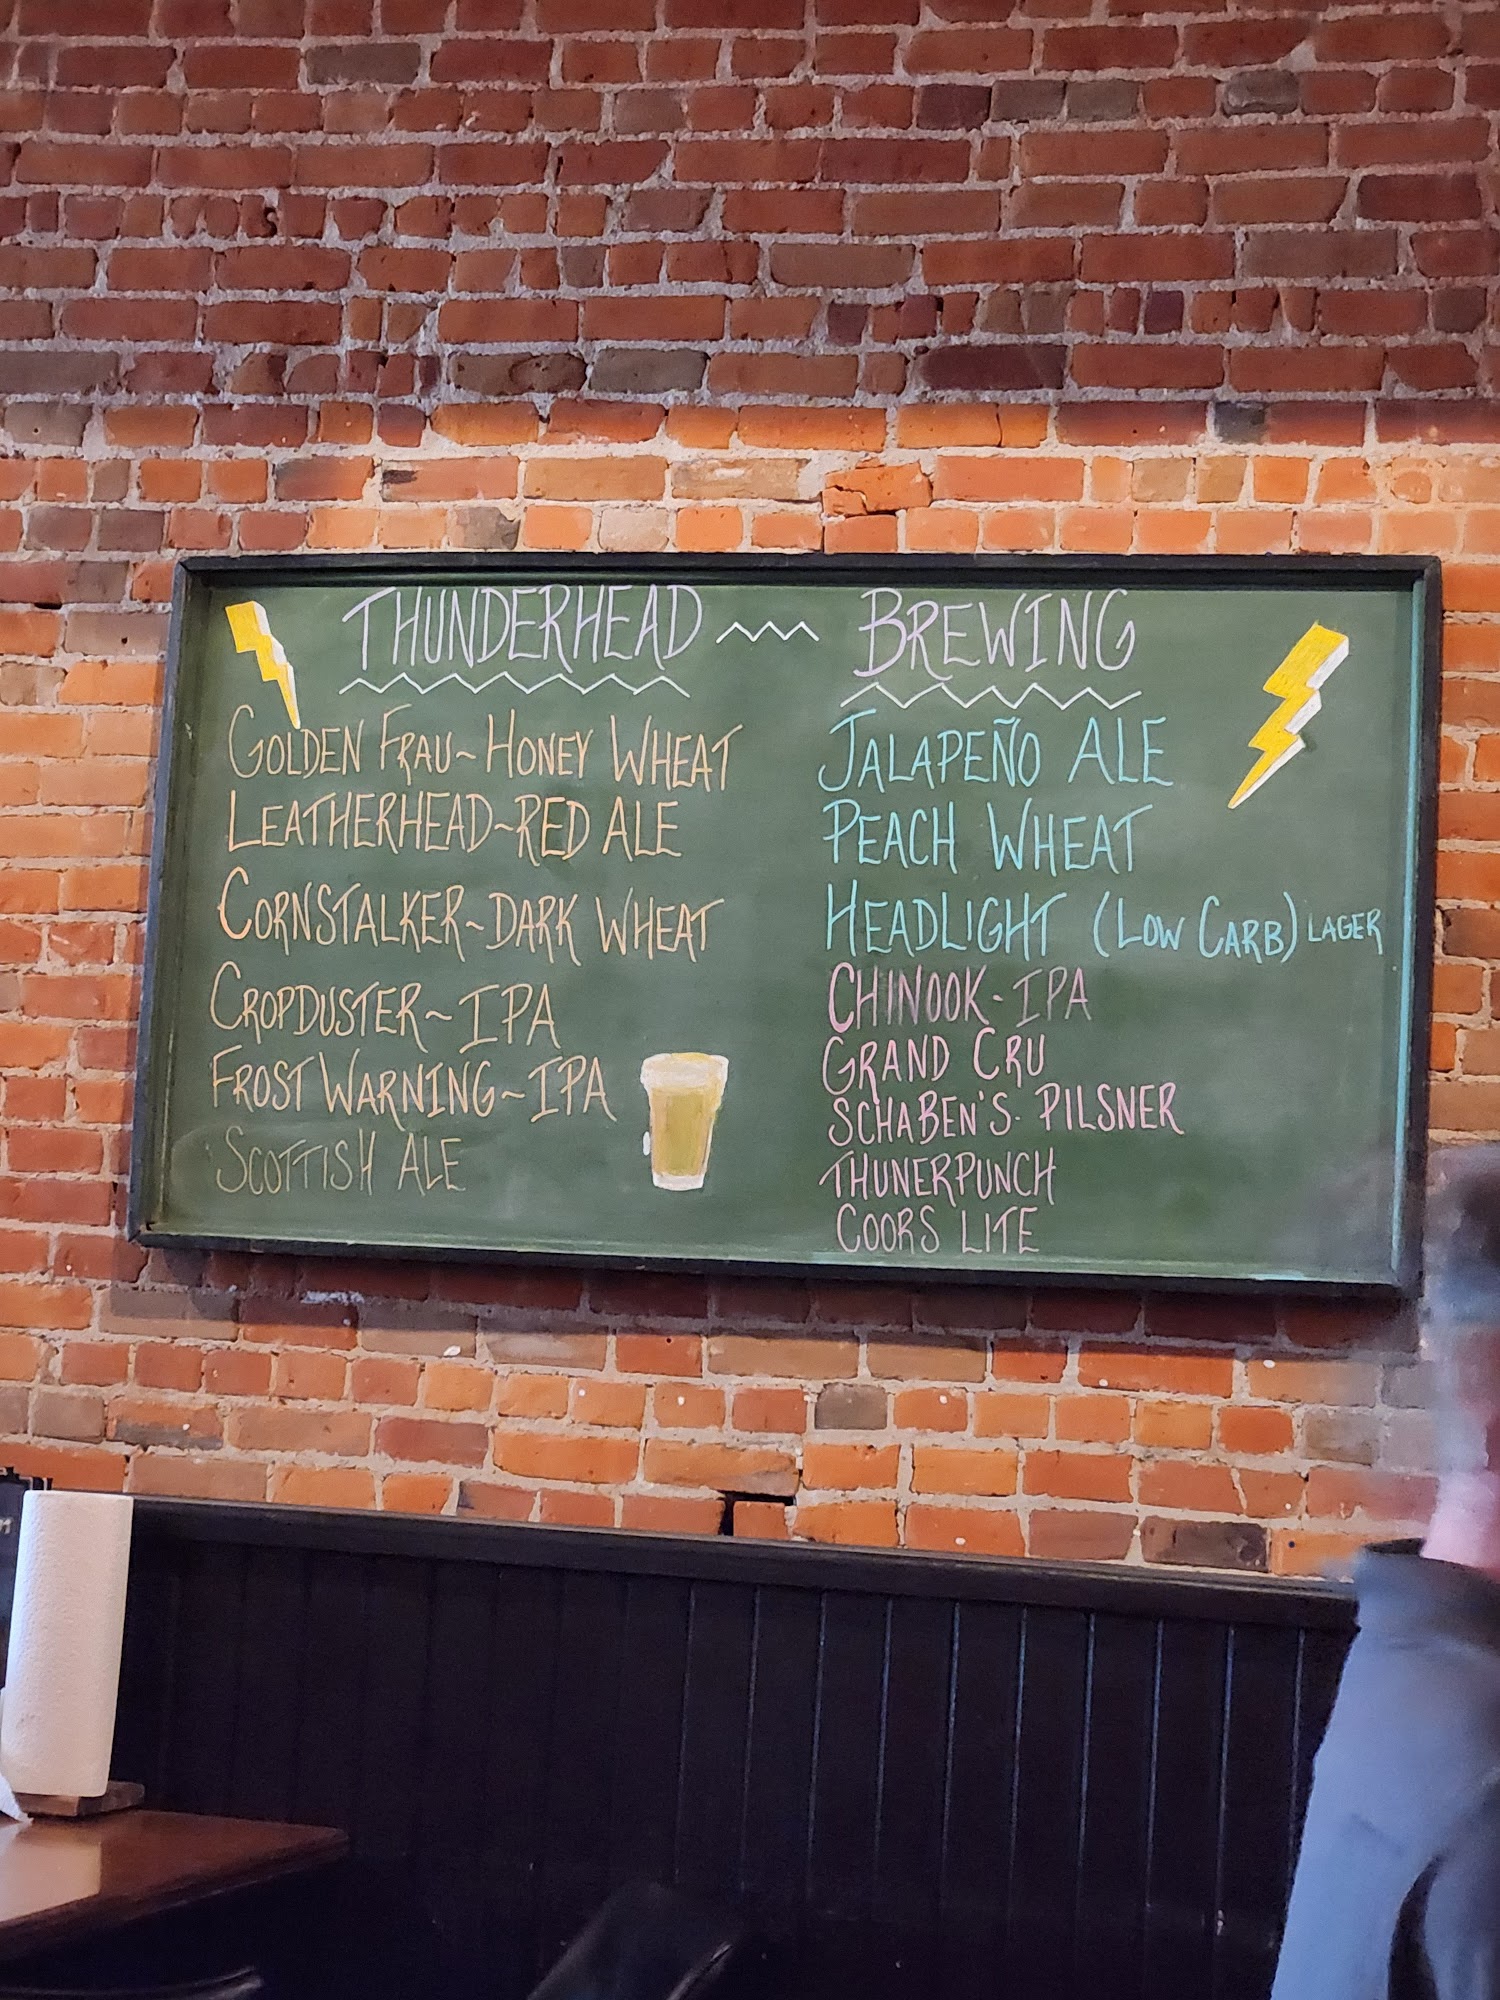 THUNDERHEAD ~ BREWING
GOLDEN FRAU~HONEY WHEAT
LEATHERHEAD~RED ALE
CORNSTALKER~DARK WHEAT
CROPDUSTER~IPA
FROST WARNING~IPA
SCOTTISH ALE
JALAPEÑO ALE
PEACH WHEAT
HEADLIGHT (LOW CARB) LAGER
CHINOOK-IPA
GRAND CRU
SCHABEN'S PILSNER
THUNERPUNCH
COORS LITE